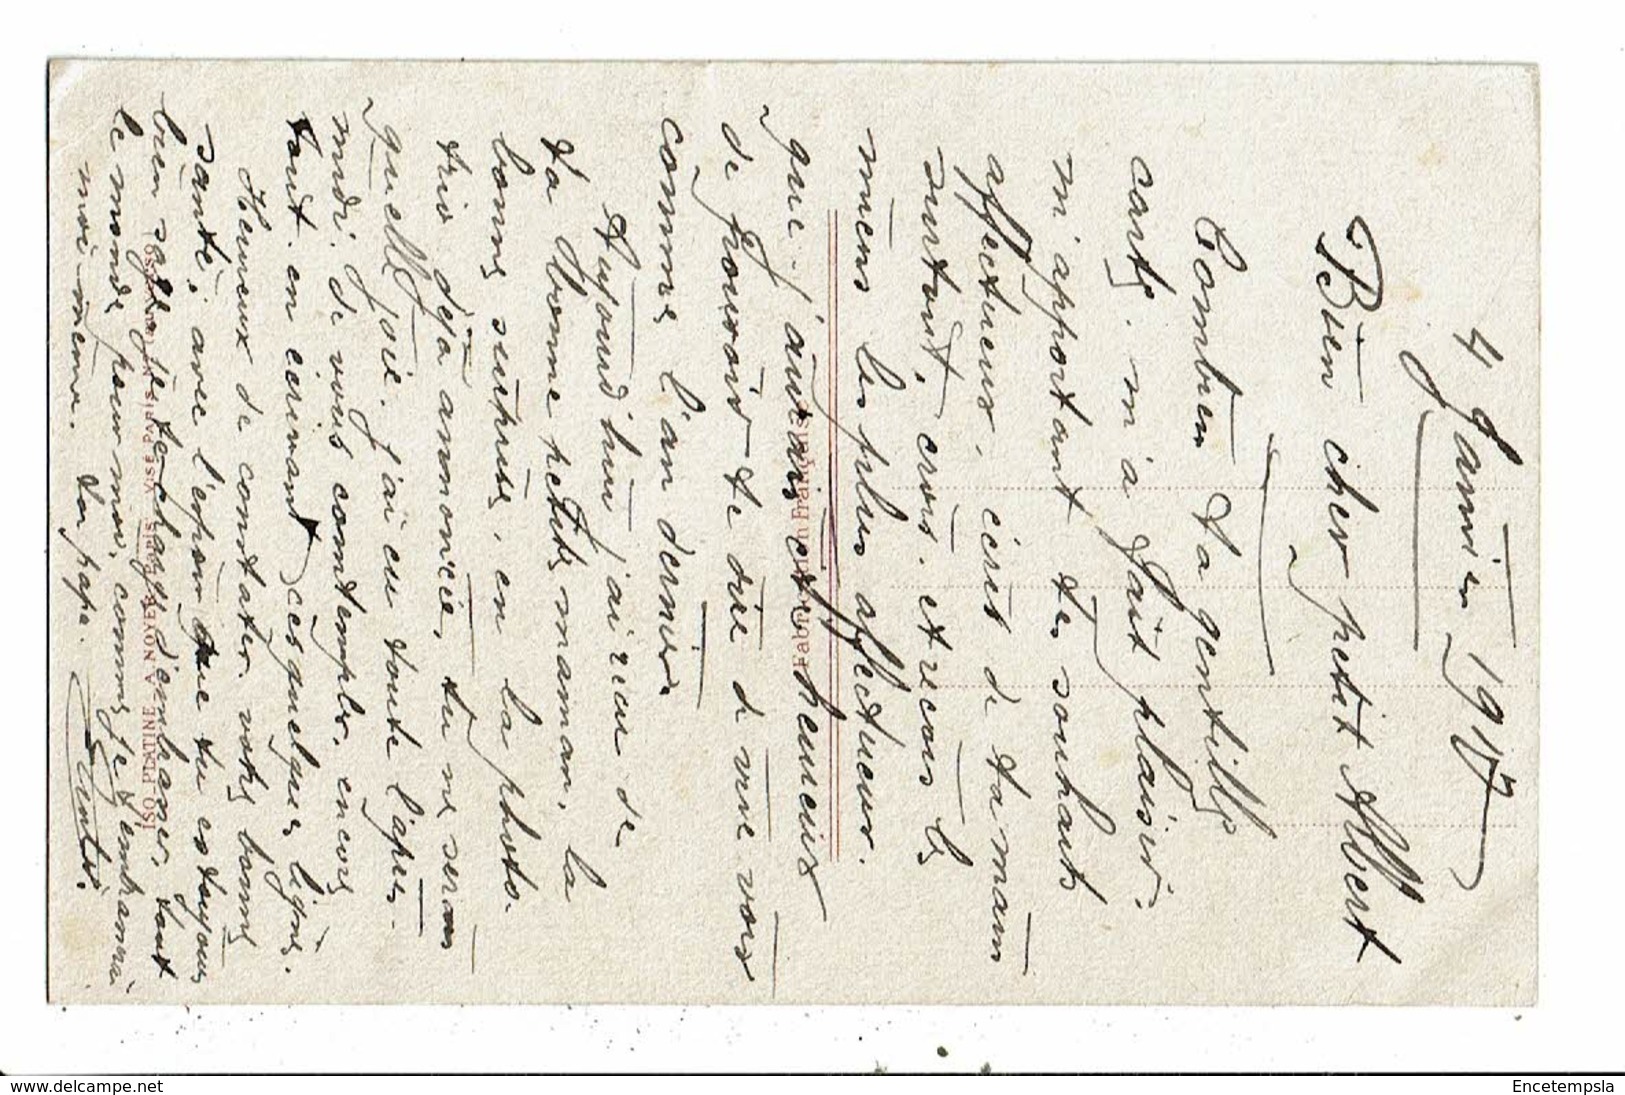 4 Janvier 1917
Bien cher petit Albert
Combien ta gentille
carte m'a fait plaisir.
m'apportant tes souhaits
affectueux, écrits de ta main
surtout, crois. et reçois les
miens les plus affectueux.
que j'aurais été heureux
de pouvoir te dire de vive voix
comme l'an dernier
Aujourd'hui j'ai reçu de
ta bonne petite maman, la
bonne surprise, en la photo.
trio déjà annoncée, tu me seras
quelle joie. j'ai eu toute l'après-
midi. de vous contempler, encore
tout en écrivant ces quelques lignes.
Heureux de constater votre bonne
santé, avec l'espoir que tu es toujours
bien sage, je te charge d'embrasser tout
le monde pour moi, comme je t'embrasserai
moi-même. ton papa.
Fabrication Française
ISO-PLATINE A NOYER PARIS VISÉ PARIS
www.delcampe.net
Encetempsla